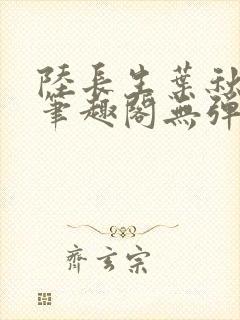 陸長生葉秋
筆趣閣無彈
齊玄宗